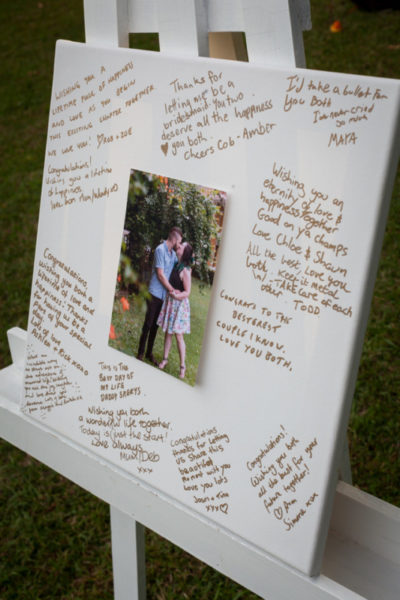 WISHING YOU A
LIFETIME PACE OF HAPPINESS
AND LOVE AS YOU BEGIN
THIS EXCITING CHAPTER TOGETHER.
WE LOVE YOU!
ROB + ZOE
Thanks for
letting me be a
bridesmaid! You two
deserve all the happiness
you both.
Cheers Cob - Amber
I'd take a bullet for
You Both
I've never cried
so much
MAYA
Congratulations!
Wishing you a lifetime
of happiness
Wishing you an
eternity of love &
happiness together
Good on ya champs
Love Chloe & Shawn
All the best, love you
both. Keep it mega
Take care of each
other. TODD
Congratulations
Wishing you both a
lifetime of love and
happiness. Thanks
for having us be a
part of your special
day.
Lots of love
CONGRATS TO THE
BESTEREST
COUPLE I KNOW.
LOVE YOU BOTH.
THIS IS THE
BEST DAY OF
MY LIFE
Wishing you both
a wonderful life together.
Today is just the start!
Love Always
Mum Deb
xxx
Congratulations
thanks for letting
us share this
beautiful
moment with you
love you lots
xxx
Congratulations!
Wishing you both
all the best for your
future together!
Simone xox